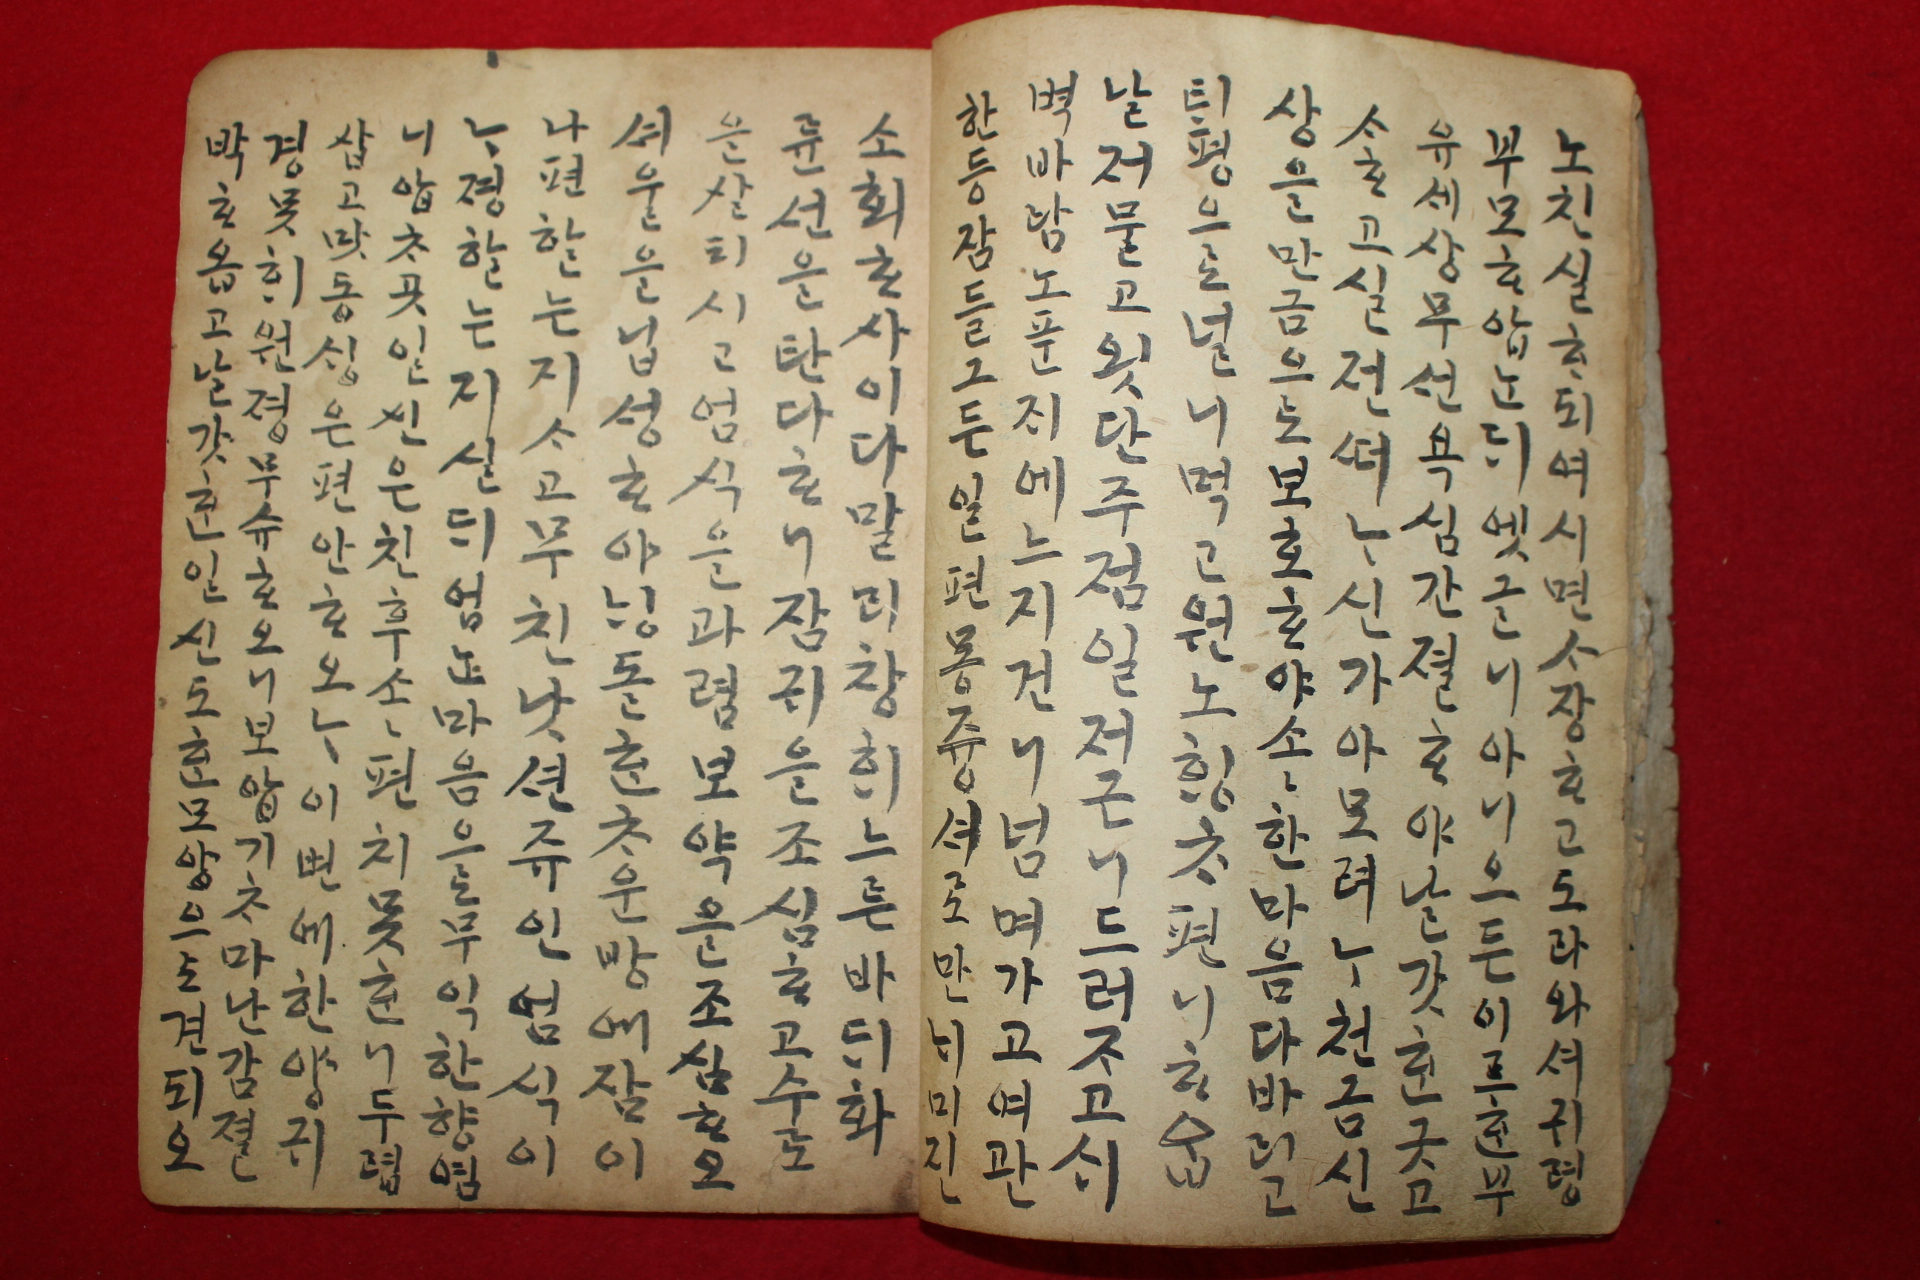 노친실ᄒᆞ되여시면ᄉᆞ장ᄒᆞ고도라와셔귀령
부모ᄒᆞ압ᄂᆞᆫᄃᆡ엣글니아니으든이르ᄒᆞᆫ부
유셰상무션욕심간졀ᄒᆞ야날갓ᄒᆞᆫ굿고
ᄉᆞᄒᆞ고실젼뎌ᄂᆞ신가아모려ᄂᆞ쳔금신
상을만금으로보호ᄒᆞ야소소한마음다바리고
ᄐᆡ평으로널니먹고원노ᄒᆡᆼᄎᆞ편니ᄒᆞ
날져물고욋단주졈일져근니드러ᄌᆞ고ᄉᆡ
벽바담노푼ᄌᆡ에느지건니넘며가고여관
한등잠들그든일편몽즁셔로만ᄂᆡ미진
소회ᄒᆞ사이다말ᄆᆡ창ᄒᆡ느른바ᄃᆡ화
륜션을탄다ᄒᆞ니잠귀을조심ᄒᆞ고수로
을살ᄐᆡ시고엄식을과렴보약을조심ᄒᆞ오
셔울을닙셩ᄒᆞ야ᄂᆡᆼ돌ᄒᆞᆫᄎᆞ운방에잠이
나편할는지ᄉᆞ고무친낫션쥬인엄식이
ᄂᆞ졍할는지실ᄃᆡ업ᄂᆞᆫ마음으로무익한향념
니압ᄎᆞ곳인신은친후소소편치못ᄒᆞᆫ니두렵
삽고맛동싱은편안ᄒᆞ오ᄂᆞ이번에한양귀
경못ᄒᆡ원졍무슈ᄒᆞ오니보압기ᄎᆞ마난감졀
박ᄒᆞ옵고날갓ᄒᆞᆫ인신도ᄒᆞᆫ모양으로견ᄃᆡ오